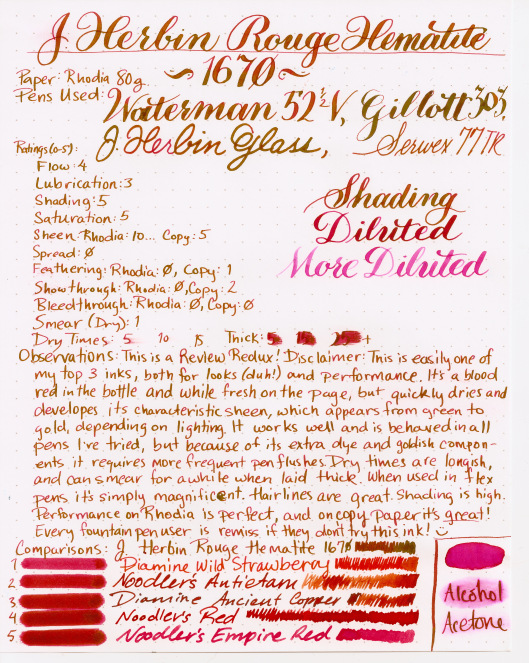 J Herbin Rouge Hematite
~1670~
Paper: Rhodia 80g
Pens Used: Waterman 52½V, Gillott 303,
J. Herbin Glass, Serwex 77TR
Ratings (0-5):
Flow: 4
Lubrication: 3
Shading: 5
Saturation: 5
Sheen: Rhodia: 10... Copy: 5
Spread: Ø
Feathering: Rhodia: Ø, Copy: 1
Showthrough: Rhodia: Ø, Copy: 2
Bleedthrough: Rhodia: Ø, Copy: Ø
Smear (Dry): 1
Dry Times: 5 10 15 Thick: 5 10 20+
Shading
Diluted
More Diluted
Observations: This is a Review Redux! Disclaimer: This is easily one of
my top 3 inks, both for looks (duh!) and performance. It's a blood
red in the bottle and while fresh on the page, but quickly dries and
developes its characteristic sheen, which appears from green to
gold, depending on lighting. It works well and is behaved in all
pens I've tried, but because of its extra dye and goldish compon-
ents it requires more frequent pen flushes. Dry times are longish,
and can smear for awhile when laid thick. When used in flex
pens it's simply magnificent. Hairlines are great. Shading is high.
Performance on Rhodia is perfect, and on copy paper it's great!
Every fountain pen user is remiss if they don't try this ink! :)
Comparisons: J. Herbin Rouge Hematite 1670
1 Diamine Wild Strawberry
2 Noodler's Antietam
3 Diamine Ancient Copper
4 Noodler's Red
5 Noodler's Empire Red
Alcohol
Acetone